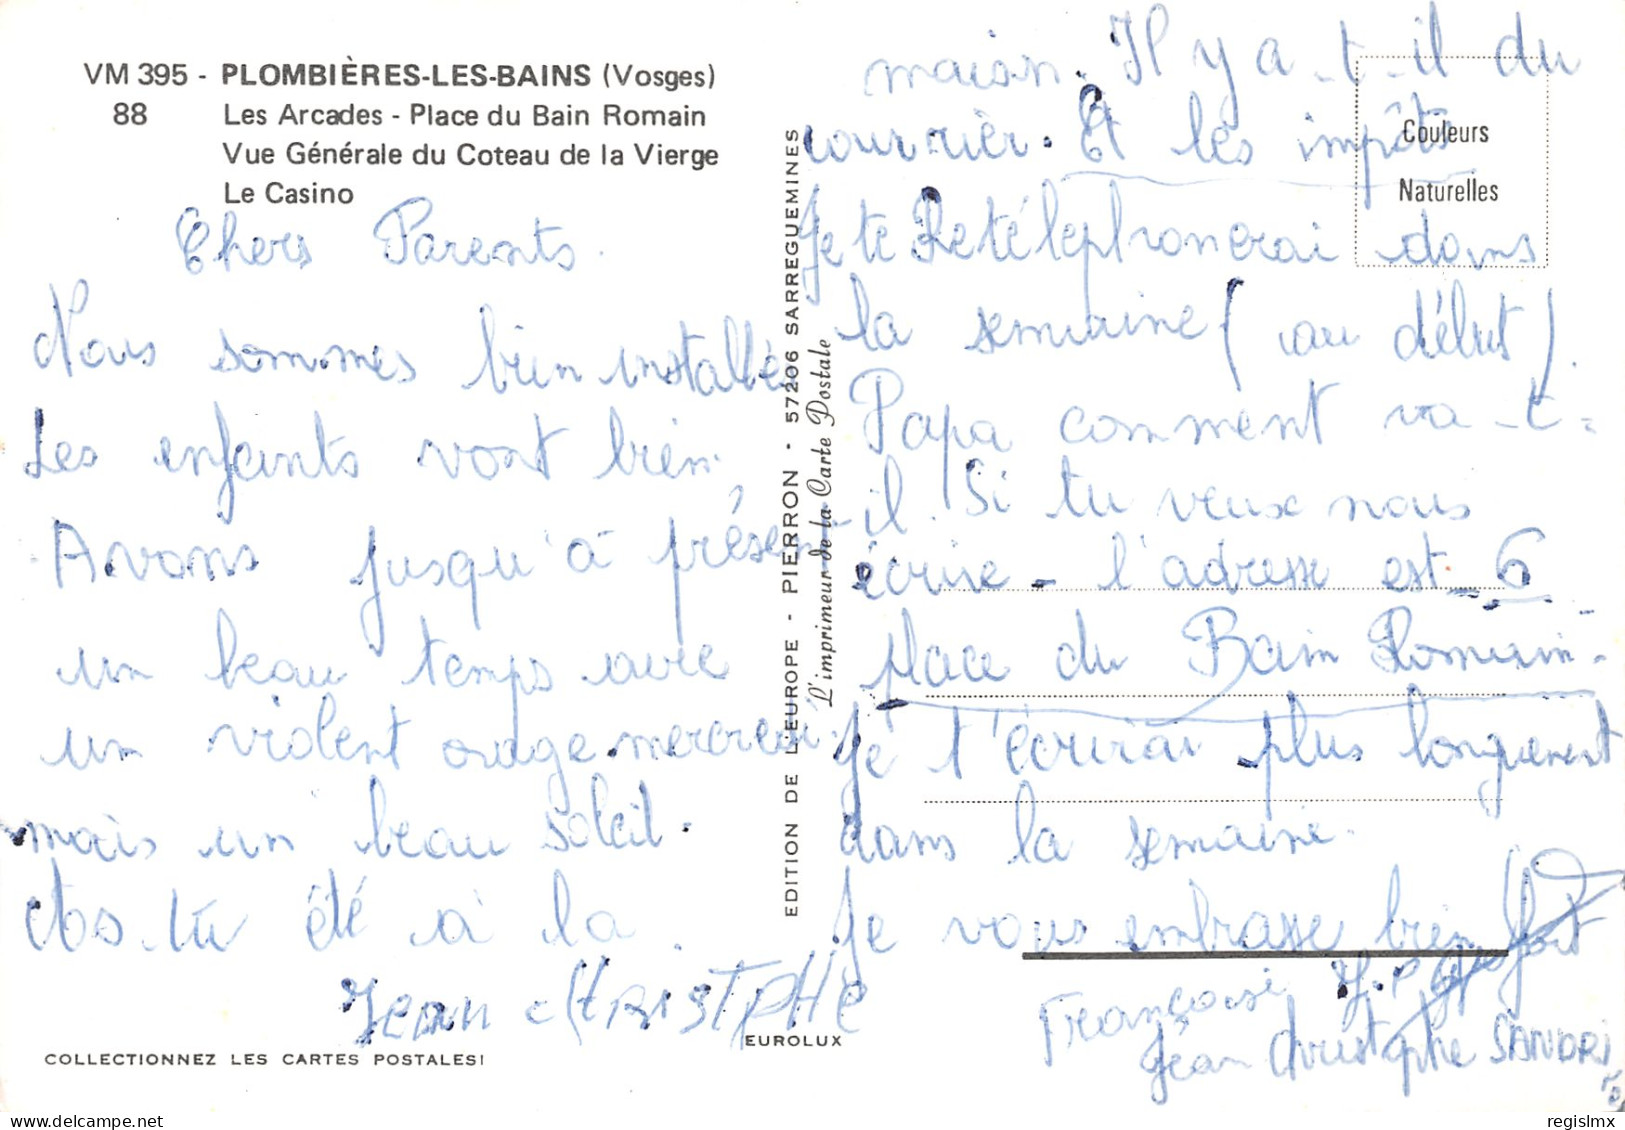 VM 395 - PLOMBIÈRES-LES-BAINS (Vosges)
88 Les Arcades - Place du Bain Romain
Vue Générale du Coteau de la Vierge
Le Casino
Chers Parents.
Nous sommes bien installés
Les enfants vont bien
Avons jusqu'à présent
un beau temps avec
un violent orage mercredi.
mais un beau soleil.
As-tu été à la
maison. Il y a-t-il du
courrier. Et les impôts
Je te Retéléphonerai dans
la semaine (au début).
Papa comment va-t-
il. Si tu veux nous
écrire - l'adresse est 6
place du Bain Romain.
Je t'écrirai plus longuement
dans la semaine.
Je vous embrasse bien fort
Françoise J.P
Jean Christophe SANDRI
Jean CHRISTOPHE
EDITION DE L'EUROPE - PIERRON - 57206 SARREGUEMINES
L'imprimeur de la Carte Postale
Couleurs
Naturelles
EUROLUX
COLLECTIONNEZ LES CARTES POSTALES!
delcampe.net
regislmx